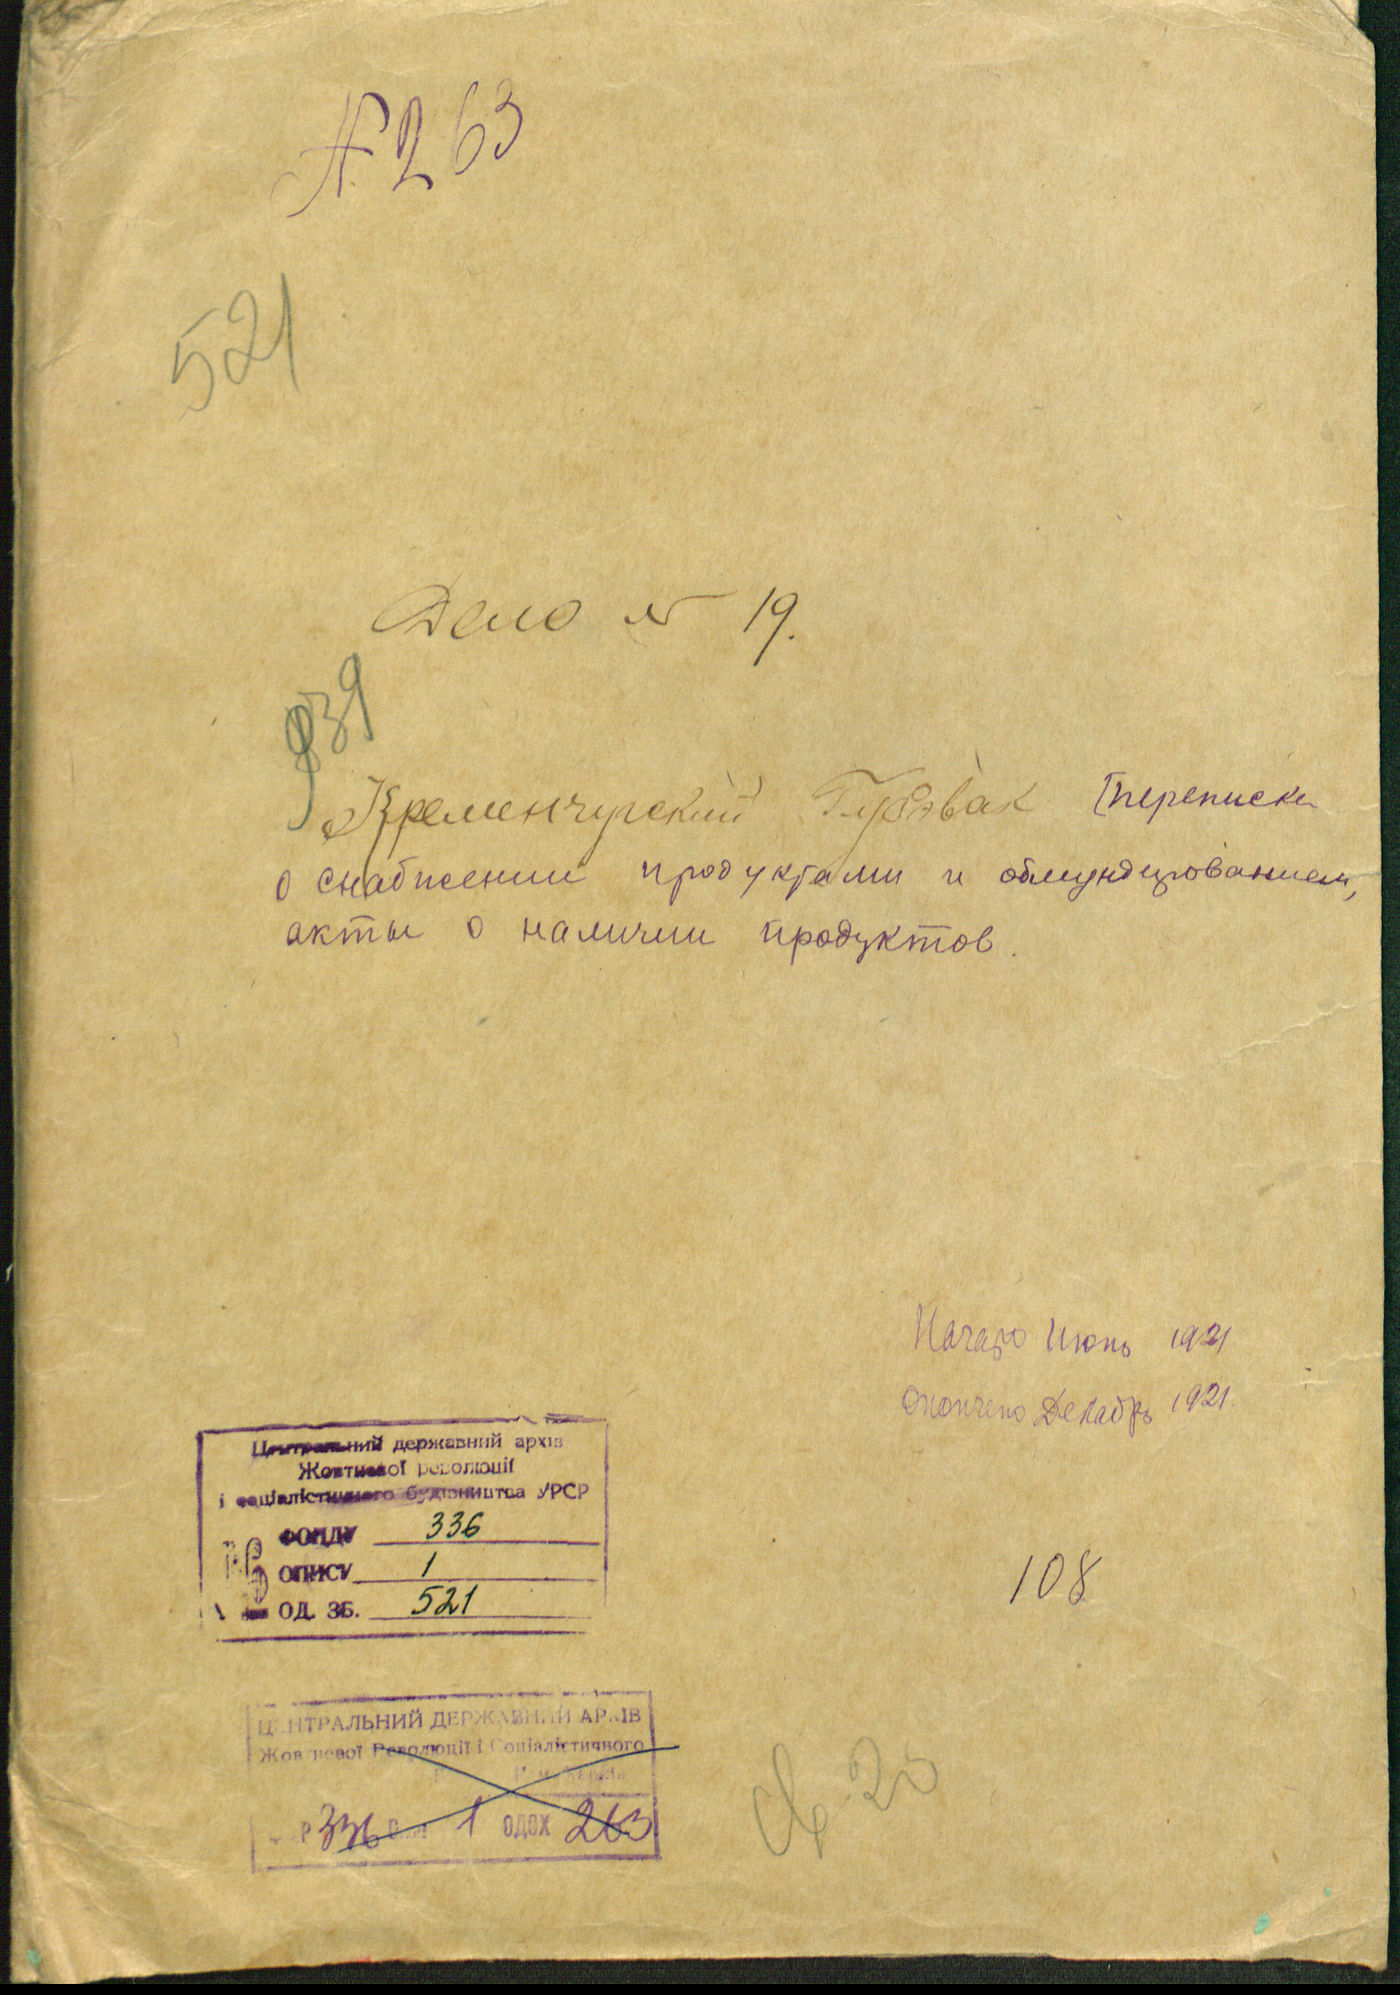 № 263
521
Дело № 19.
939
Кременчугский Губэвак [переписка
о снабжении продуктами и обмундированием,
акты о наличии продуктов.
Начато Июнь 1921
Окончено Декабрь 1921.
Центральний державний архів
Жовтневої революції
і соціалістичного будівництва УРСР
№ ФОНДУ 336
ОПИСУ 1
№ ОД. ЗБ. 521
108
ЦЕНТРАЛЬНИЙ ДЕРЖАВНИЙ АРХІВ
Жовтневої Революції і Соціалістичного
м. Харків
Р 336 1 ОДОХ 263
Св. 20